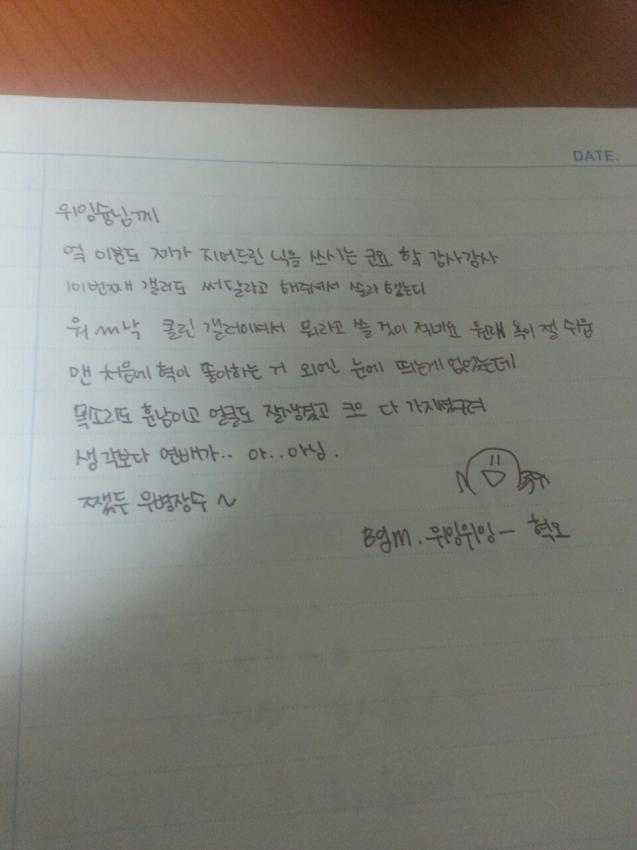 DATE.
위잉슝님께
역 이분도 제가 지어드린 닉을 쓰시는 군요 핡 감사감사
101번째 갤러도 써달라고 해주셔서 쓸라 했는디
워낙 클린 갤러이셔서 뭐라고 쓸 것이 적네요 원래 욕이 젤 쉬움
맨 처음에 혁이 좋아하는 거 외엔 눈에 띄는게 없었는데
목소리도 훈남이고 얼굴도 잘생겼고 크으 다 가지셨구려
생각보다 연배가.. 아..아님.
쨌든 위병장수~
Bgm. 위잉위잉 - 혁오